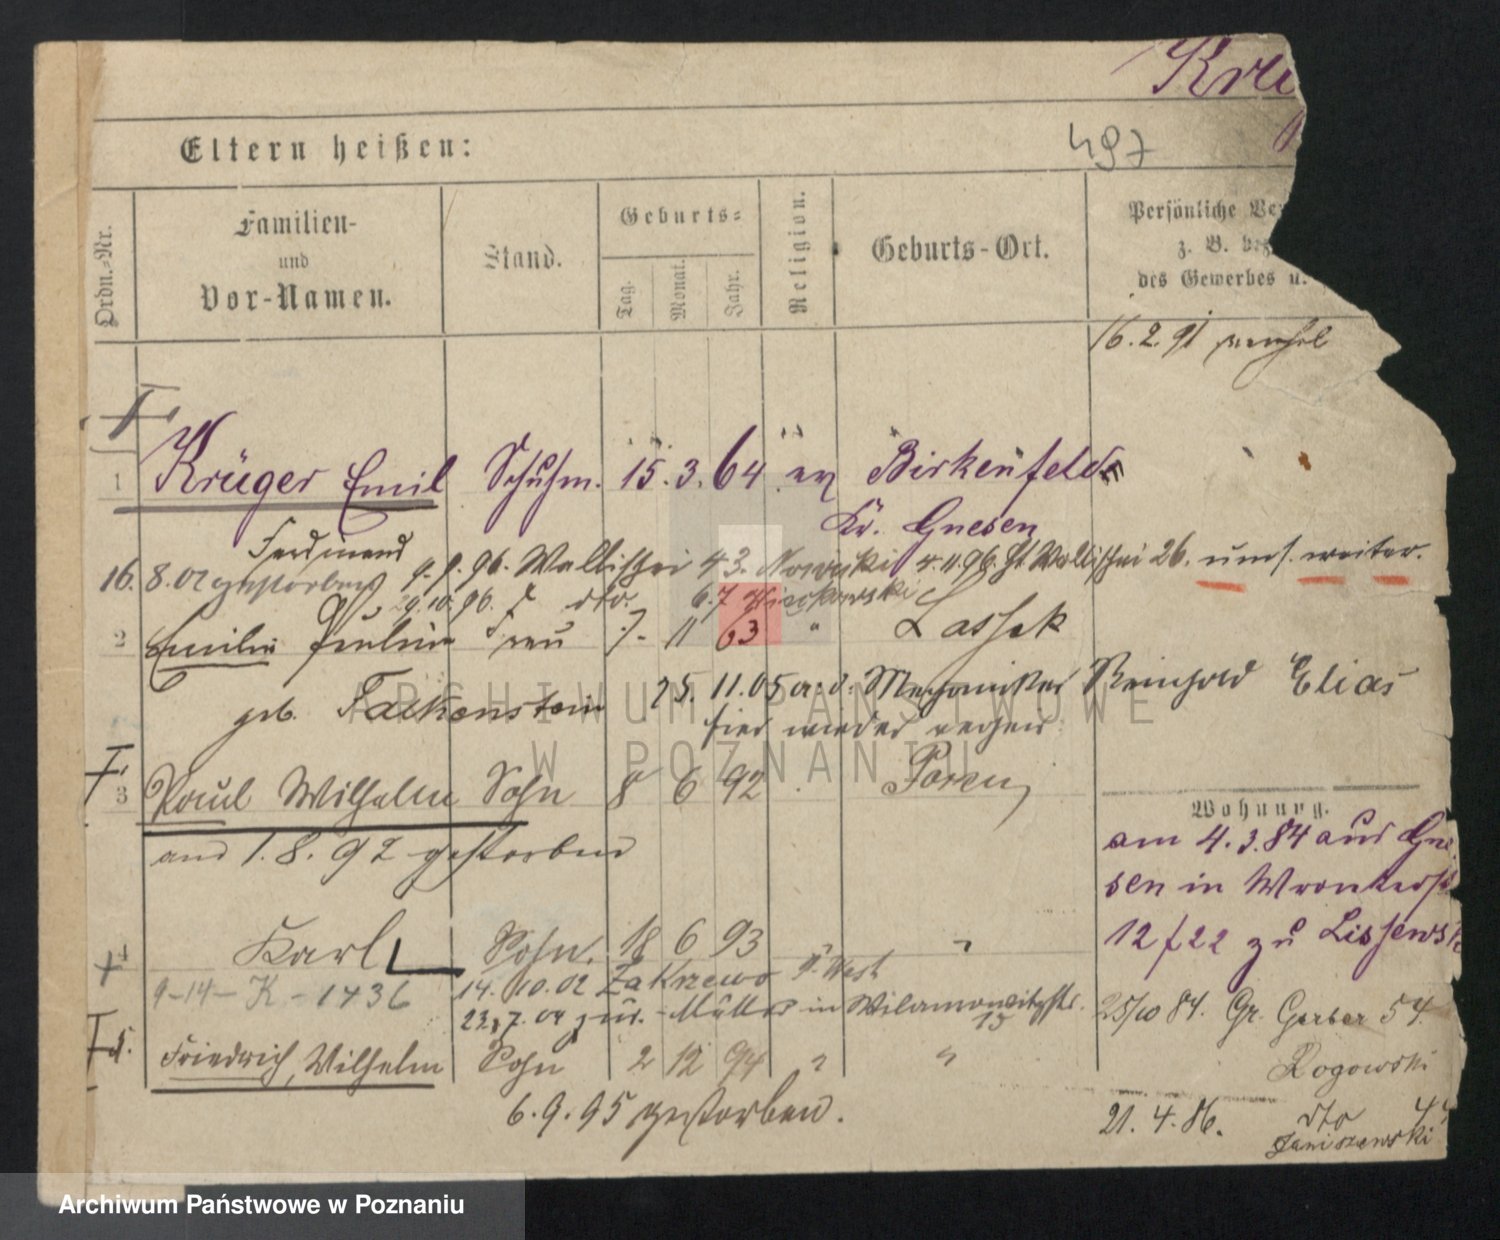 Krü
Eltern heißen:
497
Ordn.-Nr.
Familien-
und
Vor-Namen.
Stand.
Geburts-
Tag.
Monat.
Jahr.
Religion.
Geburts-Ort.
Persönliche Ver
z. B. bez
des Gewerbes u.
16. 2. 91
1 Krüger Emil Schuhm. 15. 3. 64 ev Birkenfelde
Kr. Gnesen
Ferdinand
16. 8. 01 gestorben 9. 9. 96. Wallischei 43. Nowicki 4. 11. 96. Wallischei 26. ums. weiter.
29. 10. 96. dto. 6.7
2 Emilie Pauline Frau 7. 11 63 " Lassek
geb. Falkenstein 25. 11. 05 a. d. Mechaniker Reinhold Elias
hier wieder
3 Paul Wilhelm Sohn 8 6 92 Posen
am 1. 8. 92 gestorben
Wohnung.
am 4. 3. 84 aus Gne
sen in Wronkerst
12 f 22 zu Lissewsk
4 Karl Sohn. 18 6 93 "
9-14- K - 1436 14. 10. 02 Zakrzewo P. West
23. 7. 04 zur. Mutter in Wilamowitzstr.
15
25/10 84. Gr. Gerber 54.
Rogowski
5. Friedrich, Wilhelm Sohn 2 12 94 " "
6. 9. 95 gestorben.
21. 4. 86. dto 44
Janiszewski
ARCHIWUM PAŃSTWOWE
W POZNANIU
Archiwum Państwowe w Poznaniu